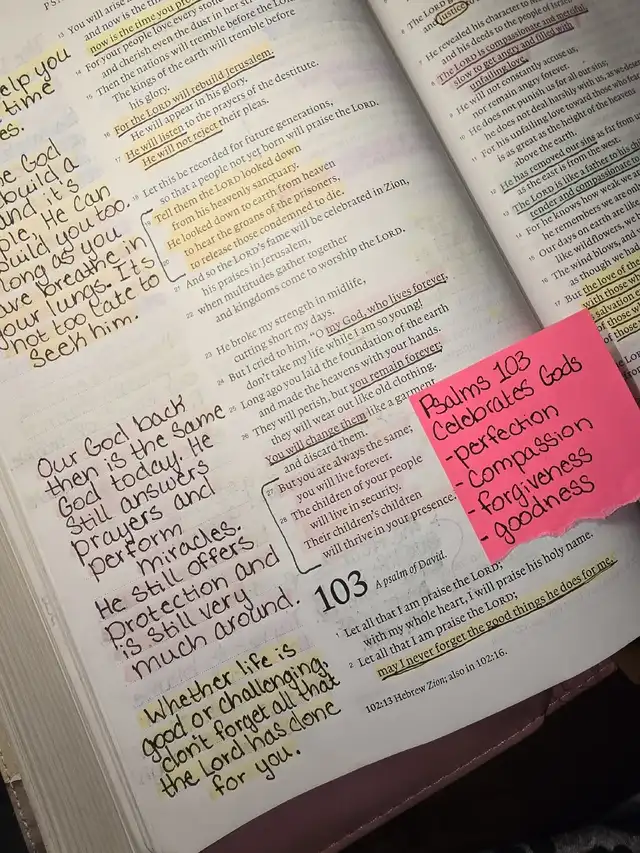 elp you
time
es.
e God
build a
and it's
ple, He can
build you too.
long as you
ave breathe in
your lungs. Its
not too late to
seek him.
Our God back
then is the same
God today. He
still answers
prayers and
perform
miracles.
He still offers
protection and
is still very
much around.
Whether life is
good or challenging,
don't forget all that
the Lord has done
for you.
13 You will arise
and now is the ti
now is the time you pro
14 For your people love every stone
and cherish even the dust in her str
15 Then the nations will tremble before the L
The kings of the earth will tremble before
his glory.
16 For the LORD will rebuild Jerusalem.
He will appear in his glory.
17 He will listen to the prayers of the destitute.
He will not reject their pleas.
18 Let this be recorded for future generations,
so that a people not yet born will praise the LORD.
19 Tell them the LORD looked down
from his heavenly sanctuary.
He looked down to earth from heaven
20 to hear the groans of the prisoners,
to release those condemned to die.
21 And so the LORD's fame will be celebrated in Zion,
his praises in Jerusalem,
22 when multitudes gather together
and kingdoms come to worship the LORD.
23 He broke my strength in midlife,
cutting short my days.
24 But I cried to him, "O my God, who lives forever,
don't take my life while I am so young!
25 Long ago you laid the foundation of the earth
and made the heavens with your hands.
26 They will perish, but you remain forever;
they will wear out like old clothing.
You will change them like a garment
and discard them.
27 But you are always the same;
you will live forever.
28 The children of your people
will live in security.
Their children's children
will thrive in your presence."
103 A psalm of David.
1 Let all that I am praise the LORD;
with my whole heart, I will praise his holy name.
2 Let all that I am praise the LORD;
may I never forget the good things he does for me.
102:13 Hebrew Zion; also in 102:16.
The LORD
and justice
7 He revealed his character to
and his deeds to the people of
8 The LORD is compassionate and merciful,
slow to get angry and filled with
unfailing love.
9 He will not constantly accuse us,
nor remain angry forever.
10 He does not punish us for all our sins;
he does not deal harshly with us, as we deser
11 For his unfailing love toward those who
is as great as the height of the heavens
above the earth.
12 He has removed our sins as far from
as the east is from the west.
13 The LORD is like a father to his
tender and compassionate
14 For he knows how weak we
he remembers we are on
15 Our days on earth are like
like wildflowers, we
16 The wind blows, and
as though we ha
17 But the love of the
with those w
salvation
18 of those
of those
Psalms 103
Celebrates Gods
-perfection
-compassion
-forgiveness
-goodness